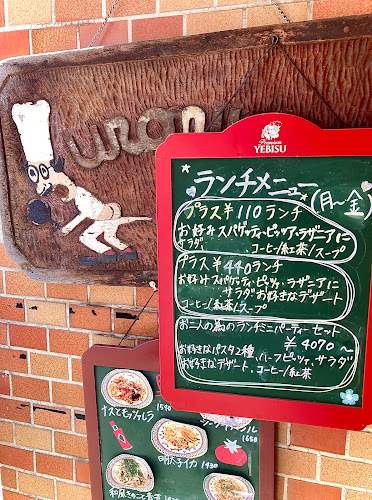 Premium
YEBISU
ランチメニュー
(月〜金)
プラス¥110ランチ
お好みスパゲッティ・ピッツァ・ラザニアに
サラダ コーヒー/紅茶/スープ
プラス¥440ランチ
お好みスパゲッティ・ピッツァ、ラザニアに
サラダ お好きなデザート
コーヒー/紅茶/スープ
お二人の為のランチミニパーティーセット
¥4070〜
お好きなパスタ2種、ハーフピッツァ、サラダ
お好きなデザート、コーヒー/紅茶
ナスとモッツァレラ
1540
1650
明太子イカ 1430
和風きのこと